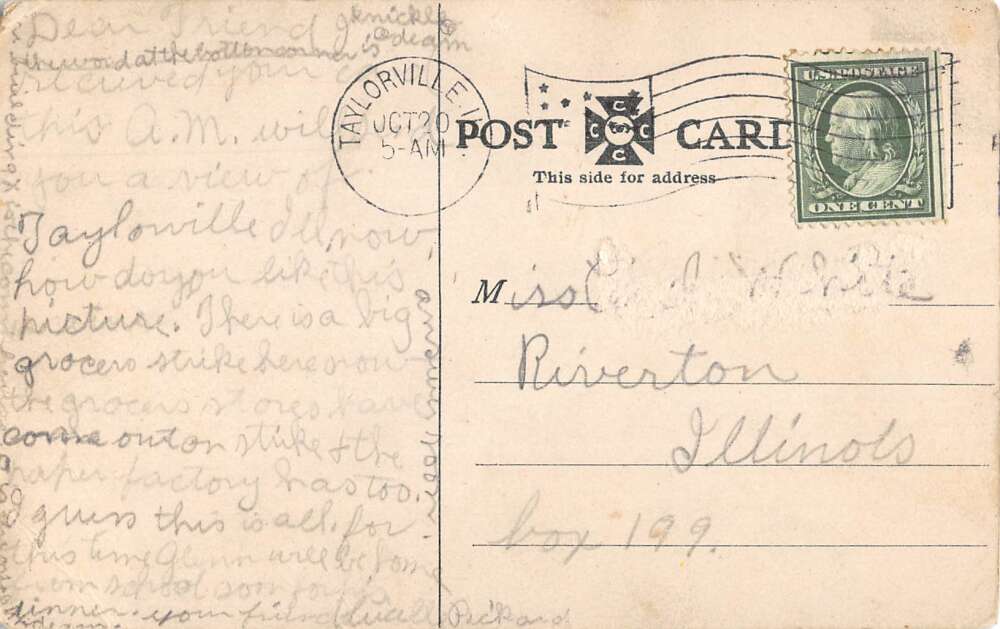 Dear Friend I
knickle
the word at the bottom corner is
recieved your
this A.M. will
you a view of
Taylorville Ill now,
how do you like this
picture. There is a big
grocers strike here now
the grocers stores have
come out on strike & the
paper factory has too.
guess this is all for
this time Glynn will be home
from school soon for his
dinner. your friend Pickard
answer soon
TAYLORVILLE, I
OCT 20
5-AM
POST CARD
C C C C
This side for address
U.S. POSTAGE
ONE CENT
Miss White
Riverton
Illinois
box 199.